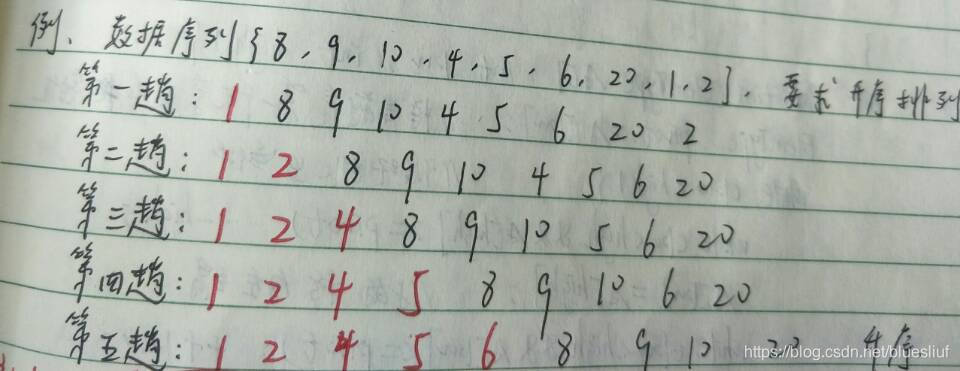 例、数据序列{8,9,10,4,5,6,20,1,2},要求升序排列
第一趟:1 8 9 10 4 5 6 20 2
第二趟:1 2 8 9 10 4 5 6 20
第三趟:1 2 4 8 9 10 5 6 20
第四趟:1 2 4 5 8 9 10 6 20
第五趟:1 2 4 5 6 8 9 10 20 升序
https://blog.csdn.net/bluesliuf